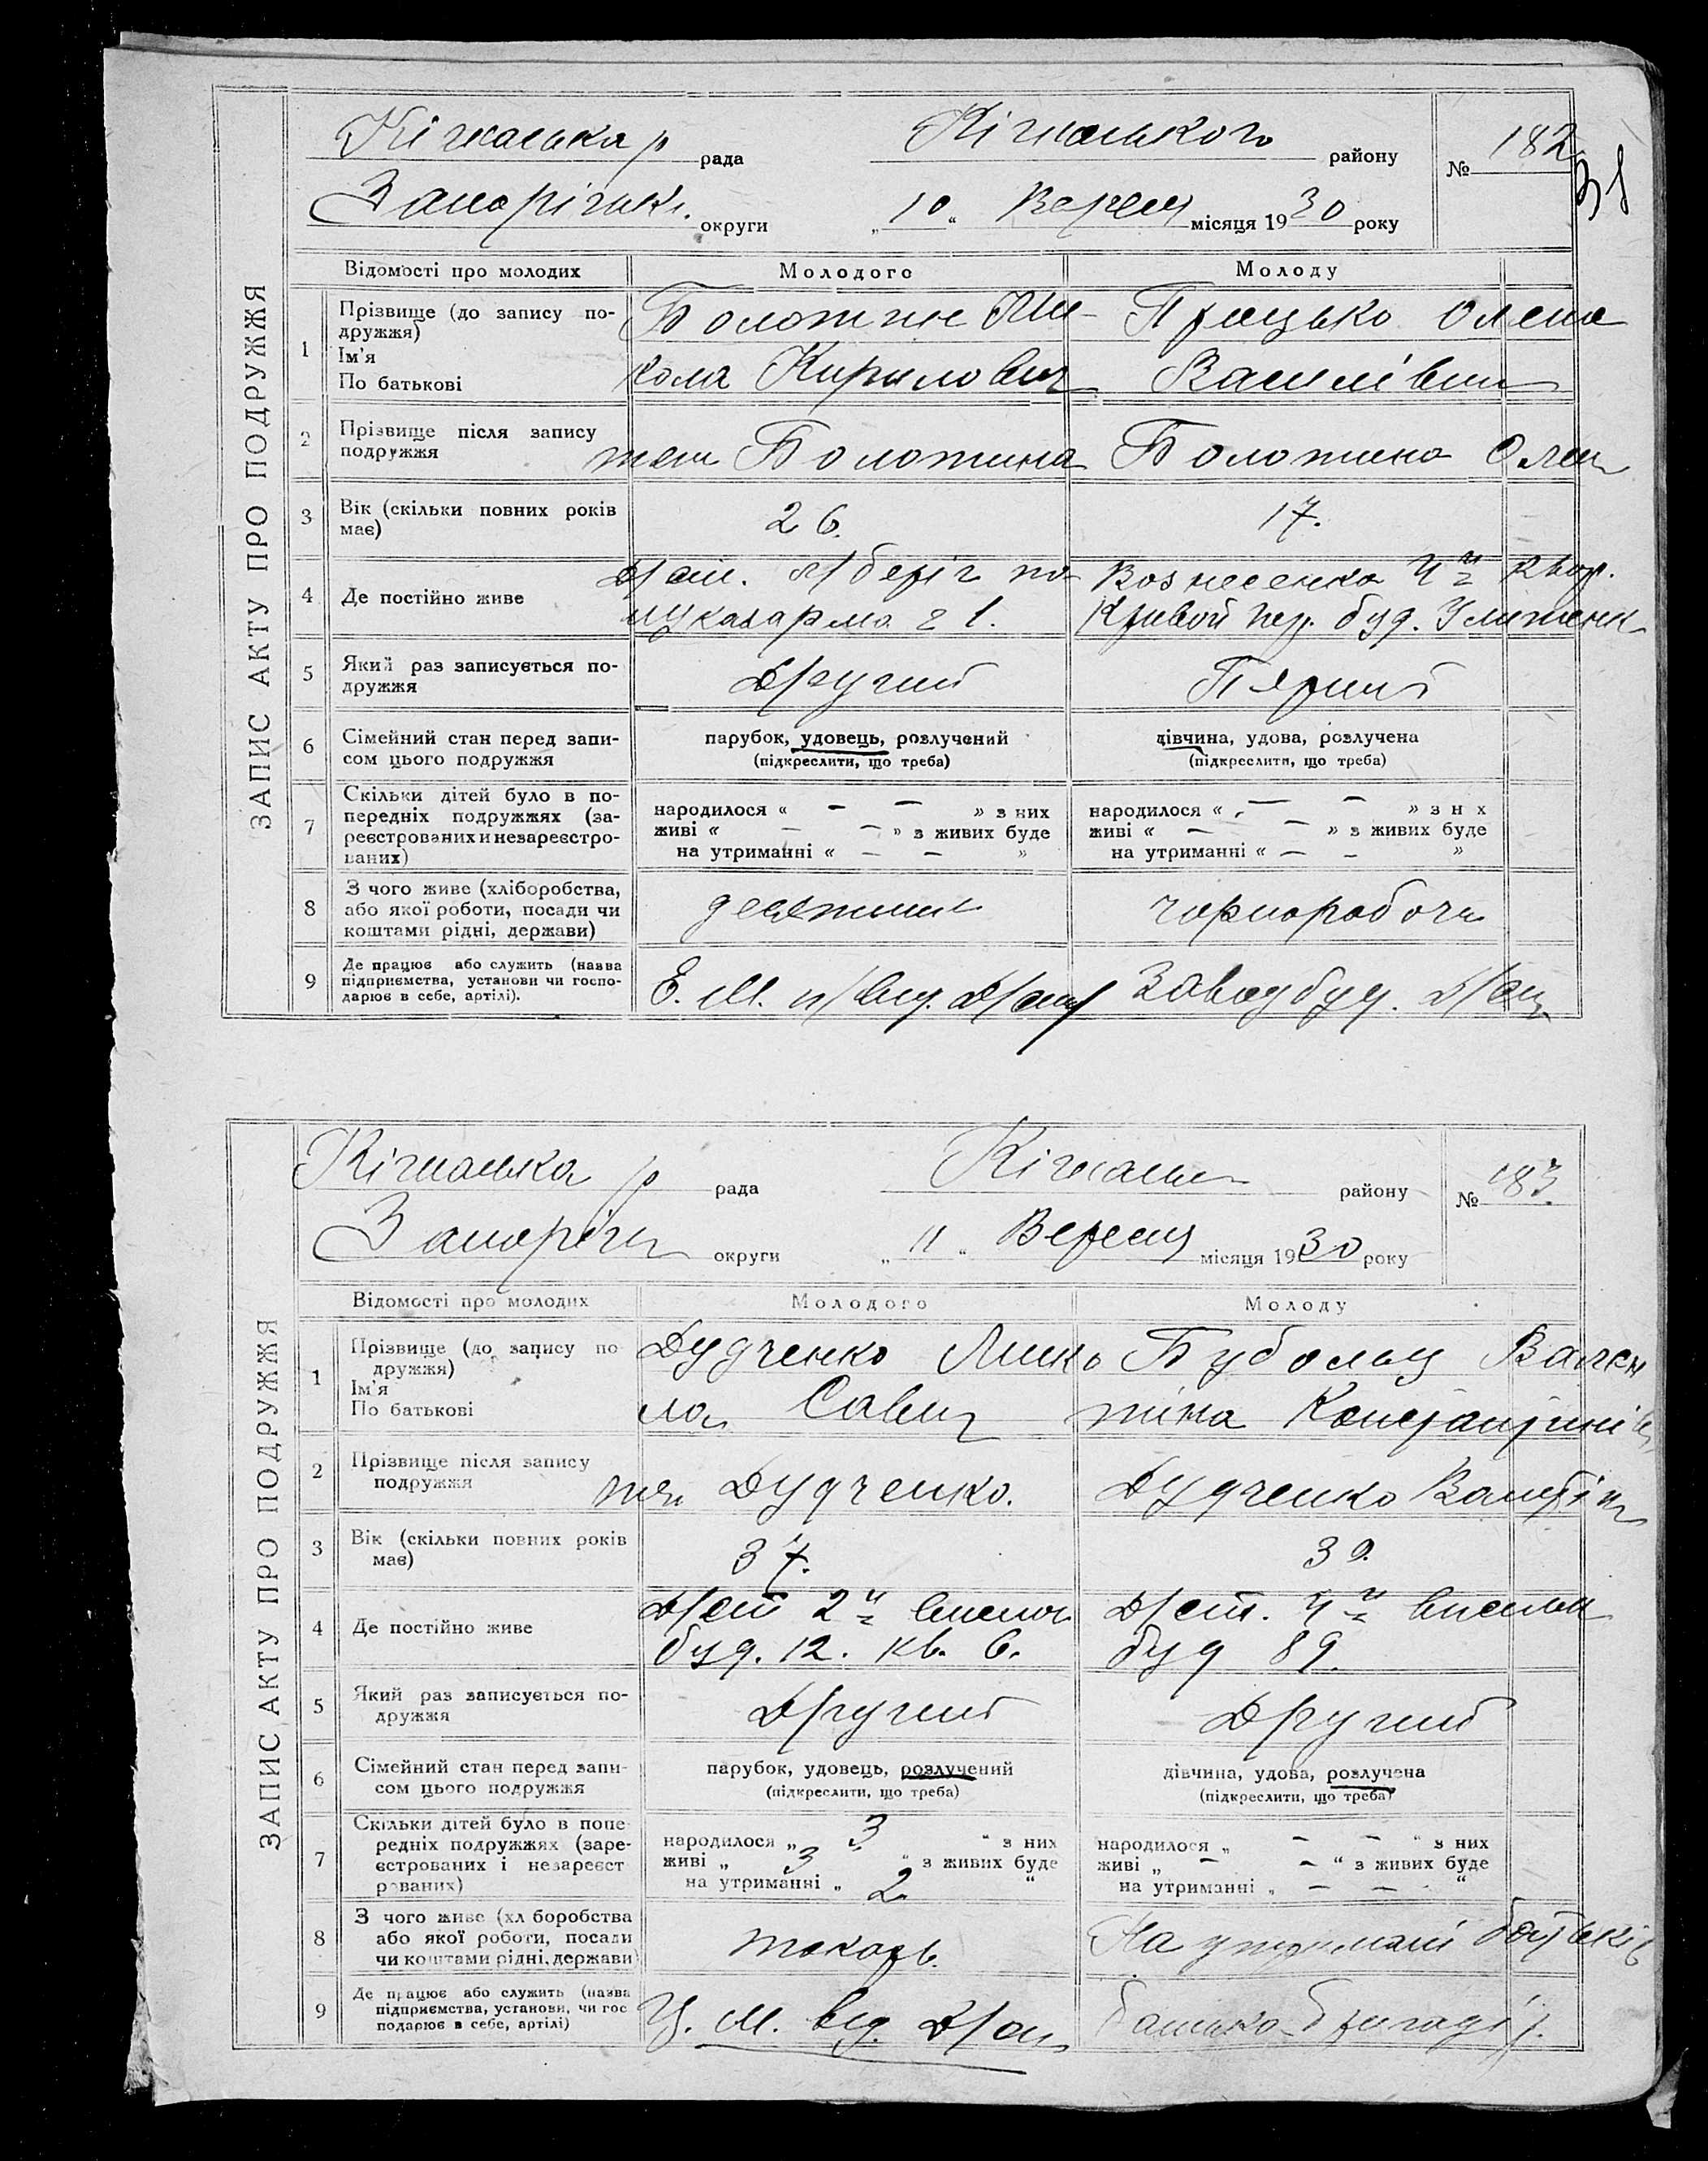 Кічкаська р рада Кічкаського району № 182
38
Запоріжьк. округи „10“ Вересня місяця 1930 року
ЗАПИС АКТУ ПРО ПОДРУЖЖЯ
Відомості про молодих Молодого Молоду
1 Прізвище (до запису подружжя) Ім'я По батькові
Болотин Ми- Процько Олена
кола Кирилович Василівна
2 Прізвище після запису подружжя
теж Болотина Болотина Олен
3 Вік (скільки повних років має) 26. 17.
4 Де постійно живе
Д/ст. п/беріг Вознесенка 4й квар.
казарма 1. Кривой пер. буд.
5 Який раз записується подружжя Другий Перший
6 Сімейний стан перед записом цього подружжя
парубок, удовець, розлучений дівчина, удова, розлучена
(підкреслити, що треба) (підкреслити, що треба)
7 Скільки дітей було в попередніх подружжях (зареєстрованих и незареєстрованих)
народилося « — — » з них народилося « — — » з н х
живі « — — » з живих буде живі « — — » з живих буде
на утриманні « — — » на утриманні « — — »
8 З чого живе (хліборобства, або якої роботи, посади чи коштами рідні, держави)
десятник чорноробоча
9 Де працює або служить (назва підприємства, установи чи господарює в себе, артілі).
Е. М. Заводбуд.
Кічкаська р рада Кічкаськ району № 183.
Запоріжь округи „11“ Вересня місяця 1930 року
ЗАПИС АКТУ ПРО ПОДРУЖЖЯ
Відомості про молодих Молодого Молоду
1 Прізвище (до запису по дружжя) Ім'я По батькові
Дудченко Мико Вален
ла Савич тіна Константинів
2 Прізвище після запису подружжя
теж Дудченко. Дудченко Валентін
3 Вік (скільки повних років має) 37. 39.
4 Де постійно живе
Д/ст 2й виселок Д/ст. 4й виселок
буд. 12. кв. 6. буд 89.
5 Який раз записується подружжя Другий Другий
6 Сімейний стан перед записом цього подружжя
парубок, удовець, розлучений дівчина, удова, розлучена
(підкреслити, що треба) (підкреслити, що треба)
7 Скільки дітей було в попередніх подружжях (зареєстрованих і незареєст рованих)
народилося „ 3 “ з них народилося „ — — “ з них
живі „ 3 “ з живих буде живі „ — — “ з живих буде
на утриманні „ 2 “ на утриманні „ — — “
8 З чого живе (хл боробства або якої роботи, посади чи коштами рідні, держави)
токарь. На утримані батьків
9 Де працює або служить (назва підприємства, установи, чи гос подарює в себе, артілі)
Ц. М. від. батько